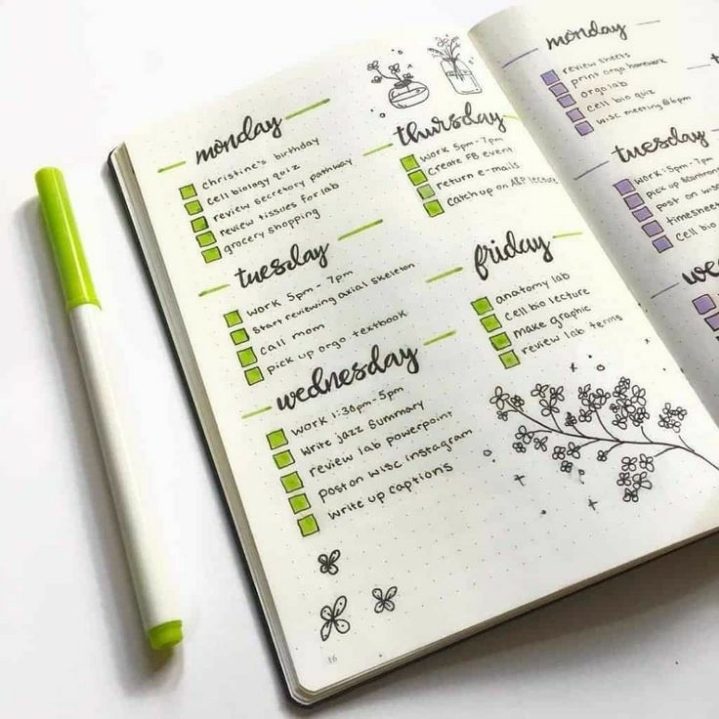 monday
Christine's birthday
cell biology quiz
review secretory pathway
review tissues for lab
grocery shopping
tuesday
work 5pm-7pm
Start reviewing axial skeleton
call mom
pick up orgo textbook
wednesday
work 1:30pm-5pm
write jazz summary
review lab powerpoint
post on wisc instagram
write up captions
thursday
work 5pm-7pm
Create FB event
return e-mails
catch up on AEP
friday
anatomy lab
cell bio lecture
make graphic
review lab terms
16
monday
review sheets
print orgo homework
orgo lab
cell bio quiz
wisc meeting @ 6pm
tuesday
work: 5pm-7pm
pick up
post on
timesheet
cell bio
we